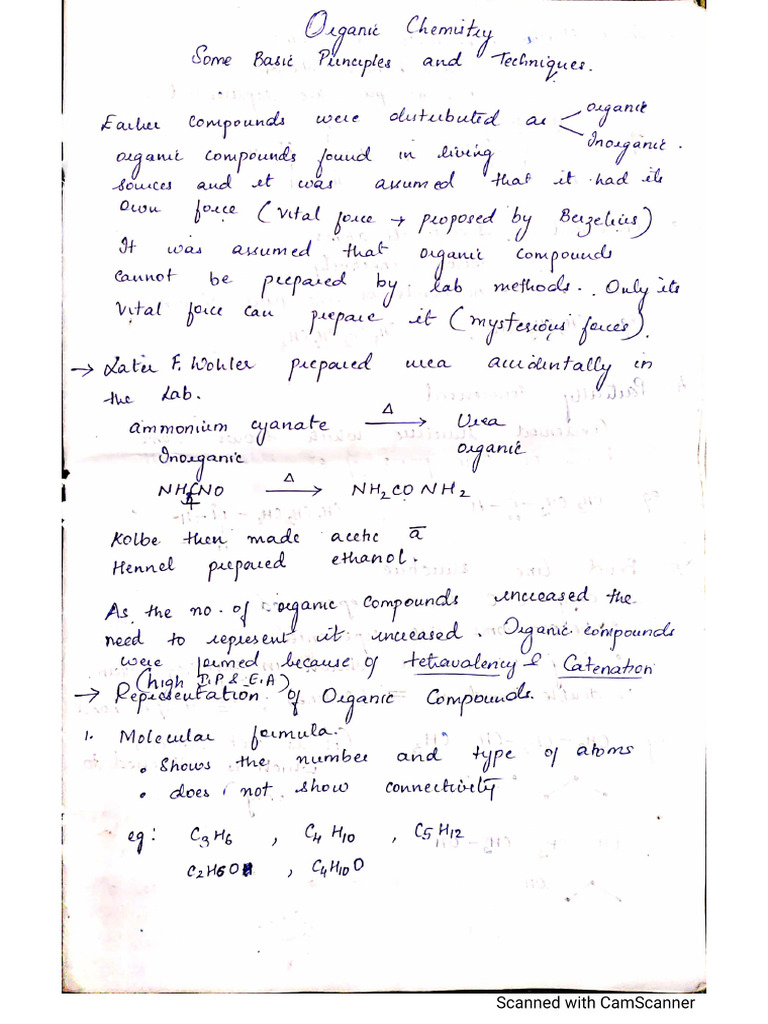 Organic Chemistry
Some Basic Principles and Techniques.
Earlier compounds were distributed as < organic
Inorganic.
organic compounds found in living
sources and it was assumed that it had its
own force (Vital force → proposed by Berzelius)
It was assumed that organic compounds
cannot be prepared by lab methods. Only its
Vital force can prepare it (mysterious forces).
→ Later F. Wohler prepared urea accidentally in
the Lab.
ammonium cyanate —Δ→ Urea
Inorganic organic
NH4CNO —Δ→ NH2CONH2
Kolbe then made acetic ā
Hennel prepared ethanol.
As the no. of organic compounds increased the
need to represent it increased. Organic compounds
were formed because of tetravalency & Catenation
(high I.P & E.A)
→ Representation of Organic Compounds.
1. Molecular formula-
• Shows the number and type of atoms
• does not show connectivity
eg: C3H6 , C4H10 , C5H12
C2H6O , C4H10O
Scanned with CamScanner